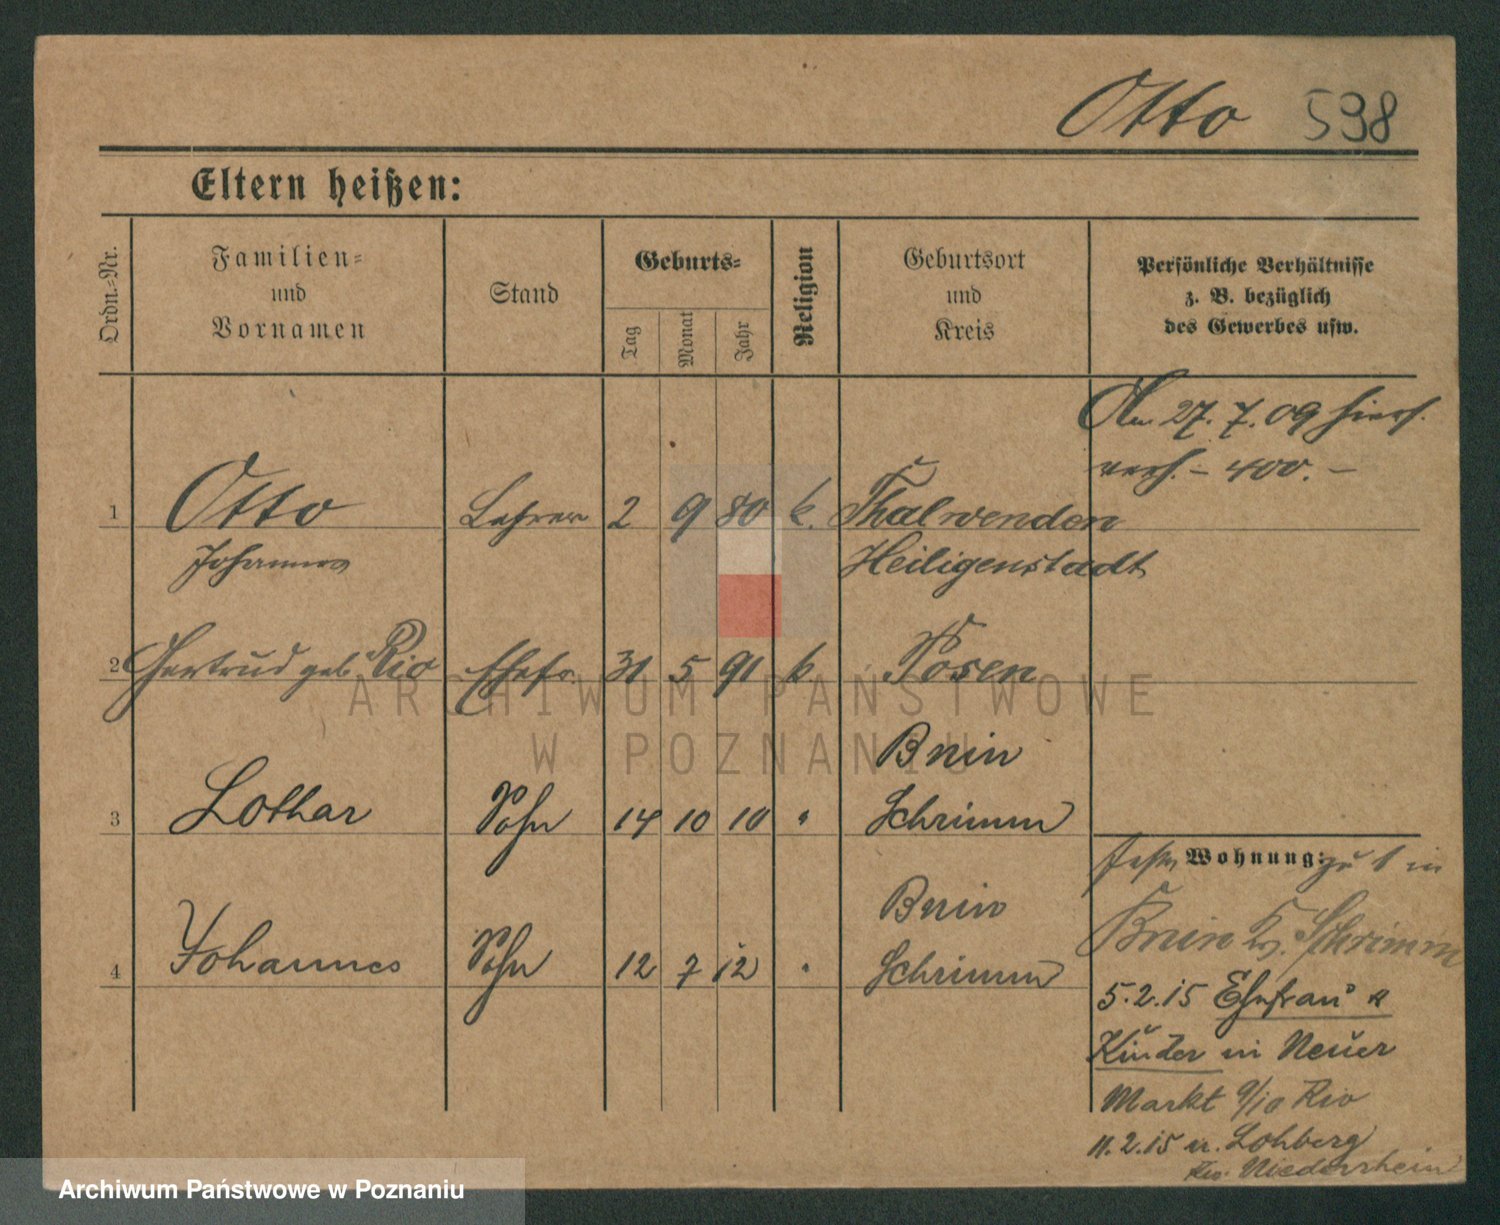 Otto 598
Eltern heißen:
Ordn.-Nr.
Familien=
und
Vornamen
Stand
Geburts=
Tag
Monat
Jahr
Religion
Geburtsort
und
Kreis
Persönliche Verhältnisse
z. B. bezüglich
des Gewerbes usw.
Am 27. 7. 09 hiers.
verh. – 400. –
1 Otto Lehrer 2 9 80 k. Thalwenden
Johannes Heiligenstadt
2 Gertrud geb. Rio Ehefr. 31 5 91 k. Posen
Bnin
3 Lothar Sohn 14 10 10 " Schrimm
Wohnung: zu 1 in
Bnin
4 Johannes Sohn 12 7 12 " Schrimm
Bnin Kr. Schrimm
5.2.15 Ehefrau u
Kinder in Neuer
Markt 9/10 Rio
11.2.15 n. Lohberg
Niederrhein
ARCHIWUM PAŃSTWOWE
W POZNANIU
Archiwum Państwowe w Poznaniu